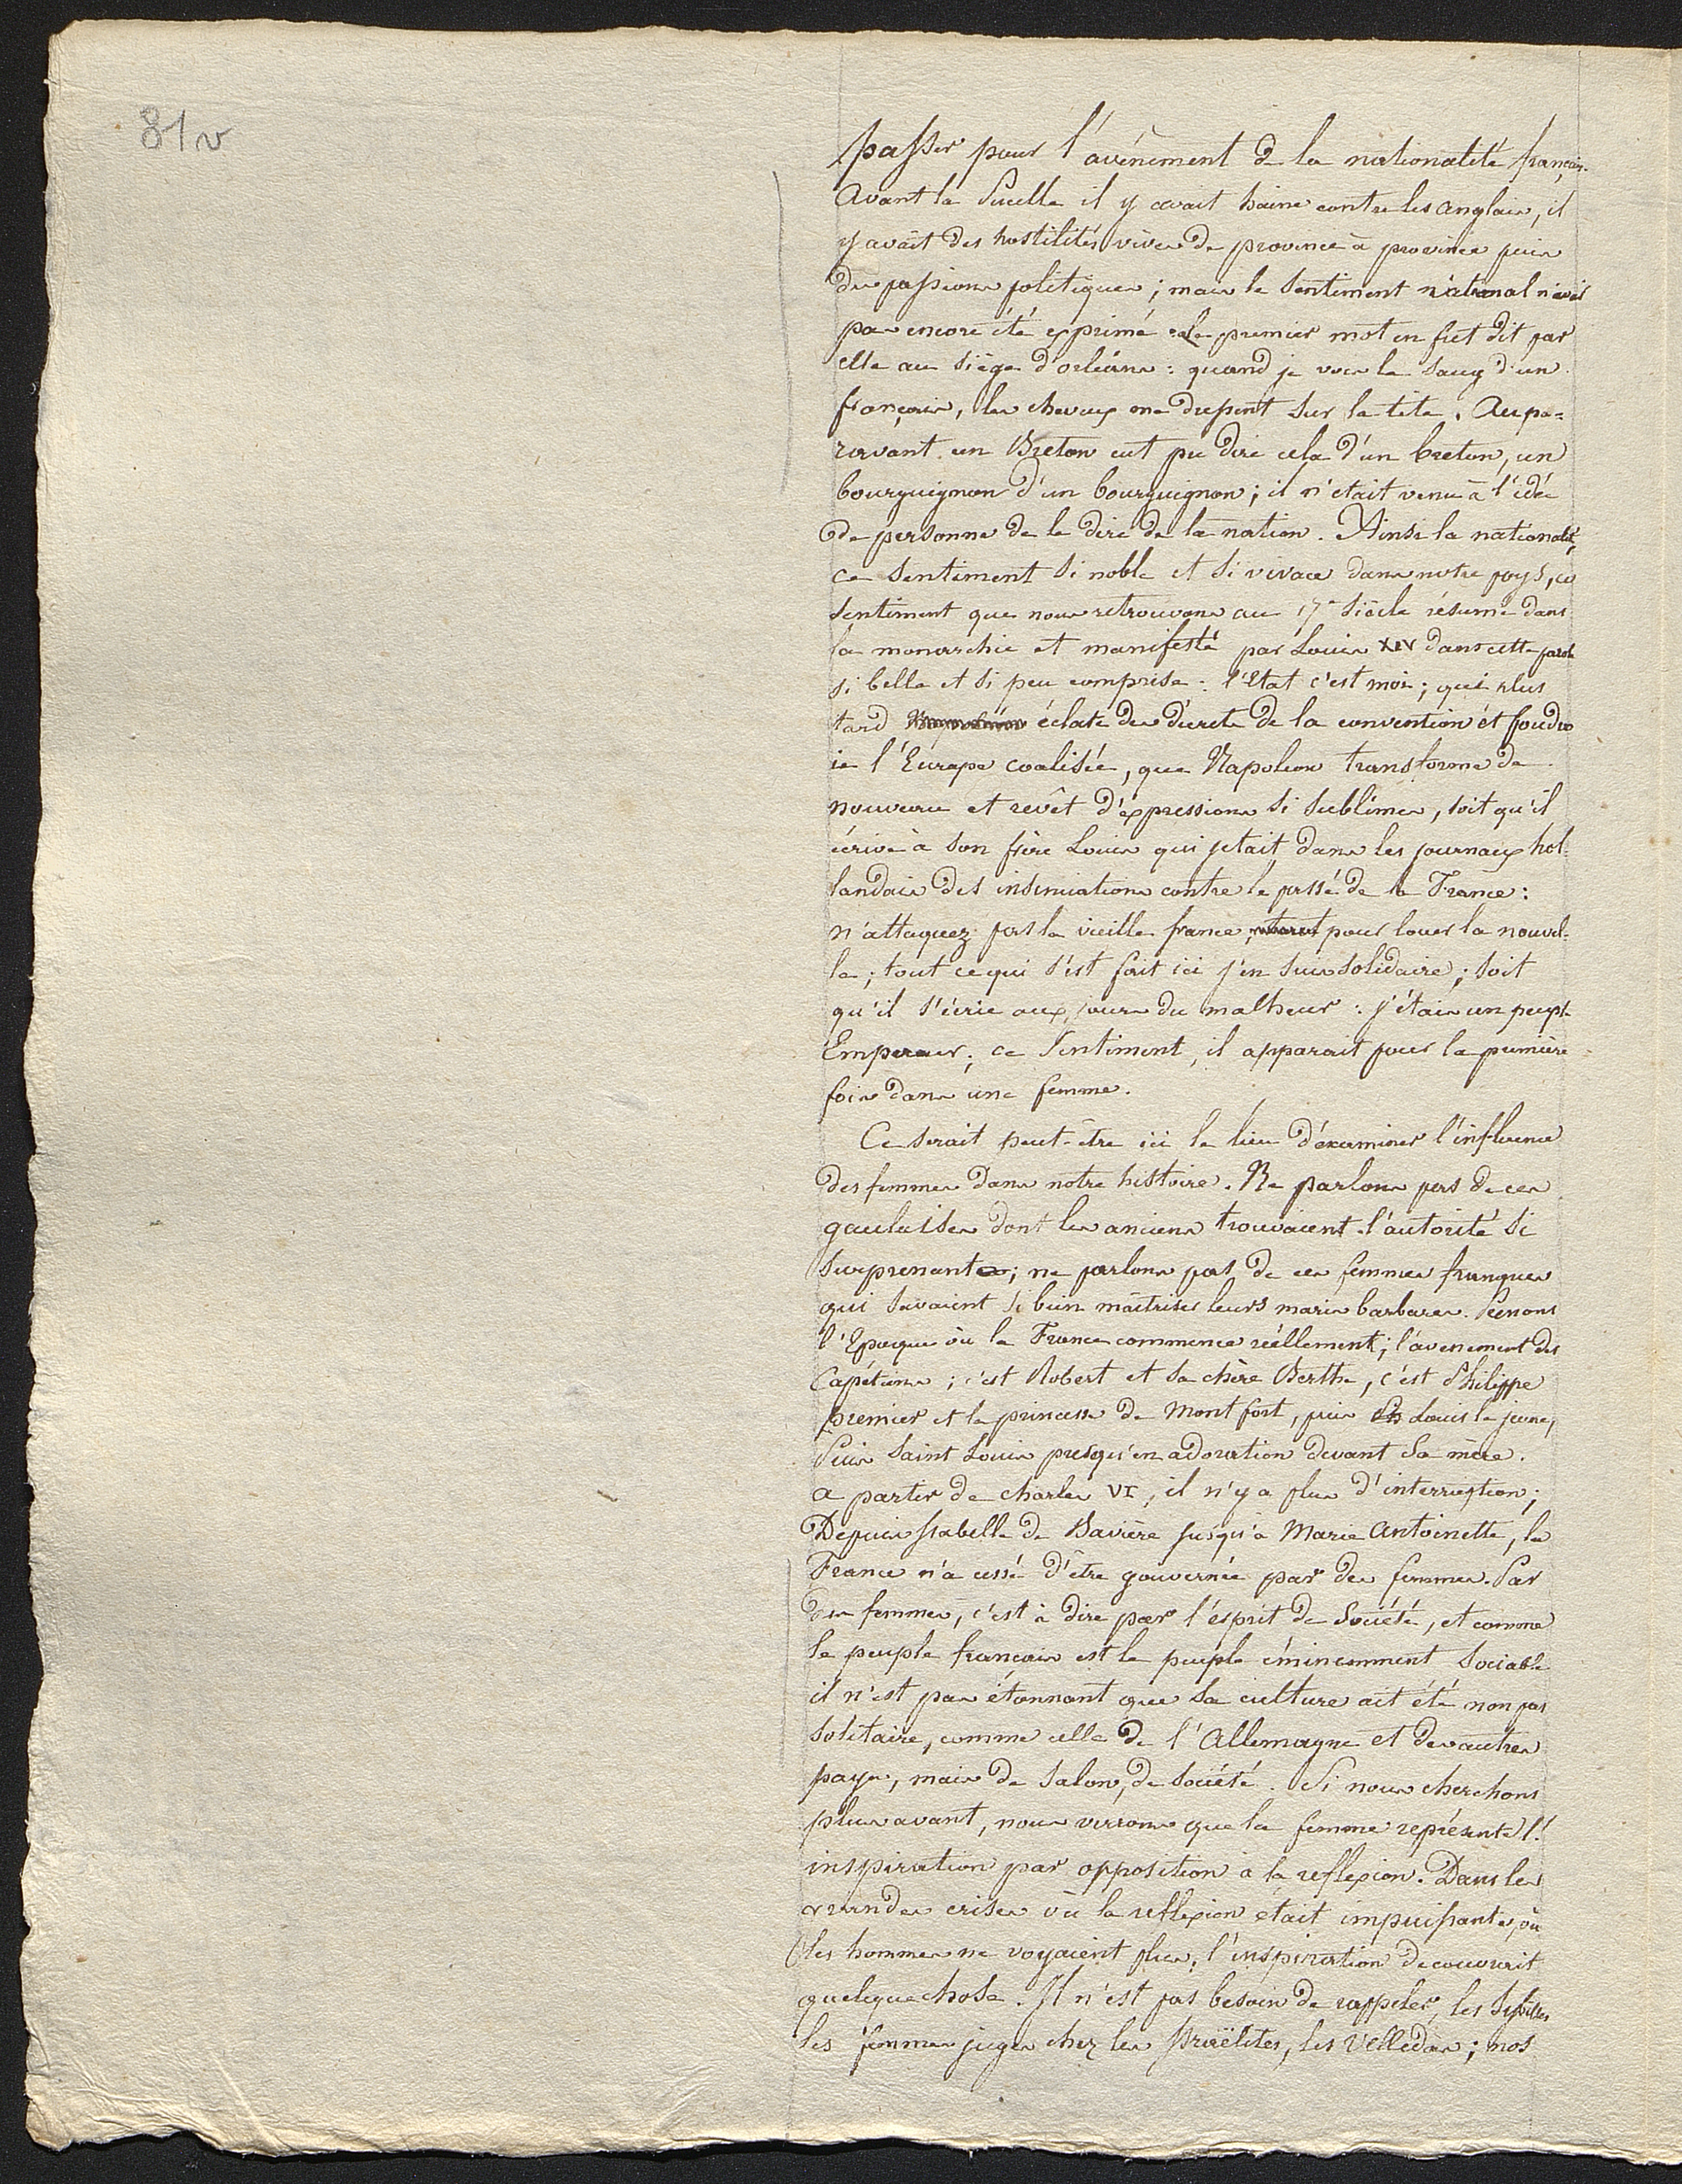 81v
passer pour l'avénement de la nationalité français.
Avant la Pucelle il y avait haine contre les anglais, il
y avait des hostilités vives de province à province puis
des passions politiques ; mais le sentiment national n'avait
pas encore été exprimé : le premier mot en fut dit par
elle au siège d'orléans : quand je vois le sang d'un
français, les cheveux me dressent sur la tête. Aupa=
ravant un Breton eut pu dire cela d'un breton, un
bourguignon d'un bourguignon ; il n'était venu à l'idée
de personne de le dire de la nation. Ainsi la nationalité,
ce sentiment si noble et si vivace dans notre pays, ce
sentiment que nous retrouvons au 17e siècle résumé dans
la monarchie et manifesté par Louis XIV dans cette parole
si belle et si peu comprise : l'Etat c'est moi ; qui plus
tard éclate des décrets de la convention et foudro
ie l'Europe coalisée, que Napoléon transforme de
nouveau et revêt d'expressions si sublimes, soit qu'il
écrive à son frère Louis qui jetait dans les journaux hol
landais des insinuations contre le passé de la France :
n'attaquez pas la vieille france, pour louer la nouvel-
le ; tout ce qui s'est fait ici j'en suis solidaire ; soit
qu'il s'écrie aux jours du malheur : j'étais un peuple
Empereur ; ce sentiment, il apparait pour la première
fois dans une femme.
Ce serait peut-être ici le lieu d'examiner l'influence
des femmes dans notre histoire. Ne parlons pas de ces
gauloises dont les anciens trouvaient l'autorité si
surprenante ; ne parlons pas de ces femmes franques
qui savaient si bien maîtriser leurs maris barbares. Prenons
l'Epoque où la France commence réellement ; l'avenement des
Capétiens ; c'est Robert et sa chère Berthe, c'est Philippe
premier et la princesse de Montfort, puis Louis le jeune,
Puis saint Louis presqu'en adoration devant sa mère.
a partir de charles VI, il n'y a plus d'interruption ;
Depuis Isabelle de Bavière jusqu'à Marie Antoinette, la
France n'a cessé d'être gouvernée par des femmes. Par
des femmes, c'est à dire par l'esprit de Société, et comme
le peuple français est le peuple éminemment sociable
il n'est pas étonnant que sa culture ait été non pas
solitaire, comme celle de l'Allemagne et des autres
pays, mais de salon, de société. Si nous cherchons
plus avant, nous verrons que la femme représente l'
inspiration par opposition à la reflexion. Dans les
grandes crises où la reflexion était impuissante, où
les hommes ne voyaient plus, l'inspiration decouvrait
quelque chose. Il n'est pas besoin de rappeler, les Sybilles
les femmes juges chez les Israëlites, les Velledas ; nos